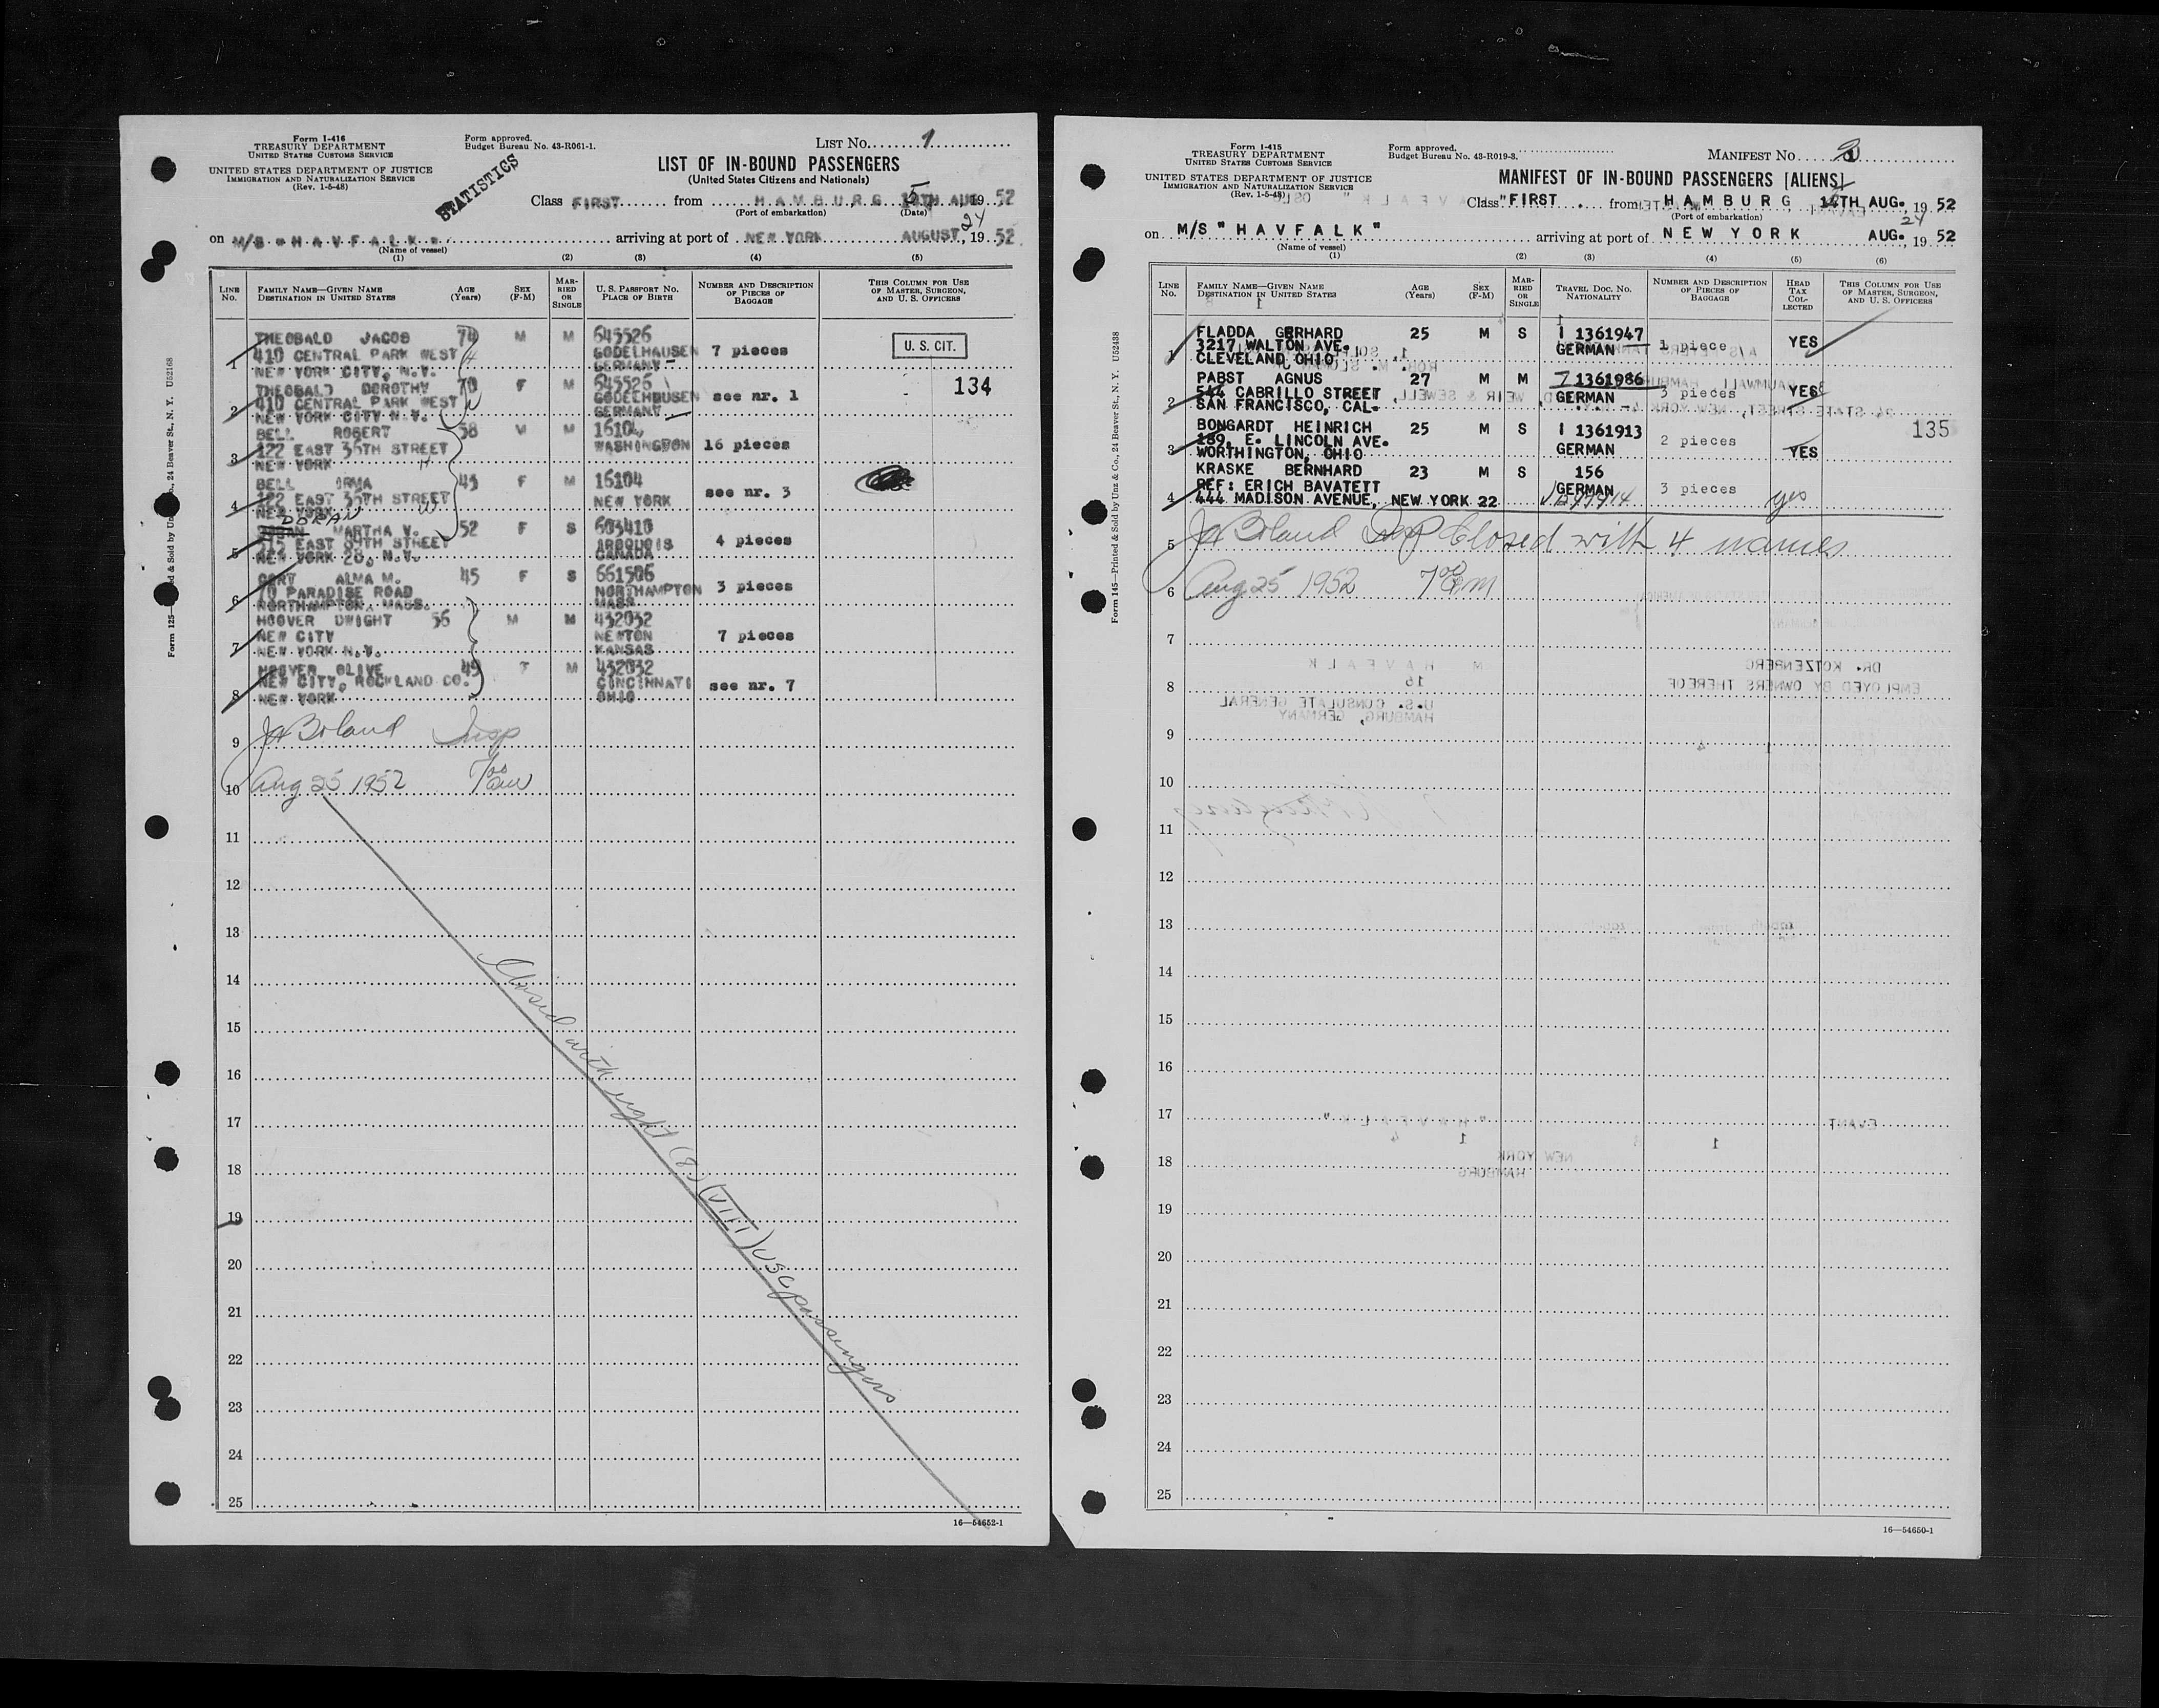 Form I-416
TREASURY DEPARTMENT
UNITED STATES CUSTOMS SERVICE
UNITED STATES DEPARTMENT OF JUSTICE
IMMIGRATION AND NATURALIZATION SERVICE
(Rev. 1-5-48)
Form approved.
Budget Bureau No. 43-R061-1.
STATISTICS
LIST No. 1
LIST OF IN-BOUND PASSENGERS
(United States Citizens and Nationals)
Class FIRST from HAMBURG 15TH AUG 19 52
(Port of embarkation) (Date)
on M/S "HAVFALK" arriving at port of NEW YORK AUGUST 24, 19 52
(Name of vessel)
(1) (2) (3) (4) (5)
LINE No. FAMILY NAME—GIVEN NAME DESTINATION IN UNITED STATES AGE (Years) SEX (F-M) MARRIED OR SINGLE U. S. PASSPORT No. PLACE OF BIRTH NUMBER AND DESCRIPTION OF PIECES OF BAGGAGE THIS COLUMN FOR USE OF MASTER, SURGEON, AND U. S. OFFICERS
THEOBALD JACOB M M 645526
410 CENTRAL PARK WEST GODELHAUSEN 7 pieces U. S. CIT.
1 NEW YORK CITY, N.Y. GERMANY
THEOBALD DOROTHY 70 F M 645526 134
410 CENTRAL PARK WEST GODELHAUSEN see nr. 1
2 NEW YORK CITY N.Y. GERMANY
BELL ROBERT 58 M M 16104
122 EAST 35TH STREET WASHINGDON 16 pieces
3 NEW YORK H
BELL IRMA 45 F M 16104
122 EAST 35TH STREET W NEW YORK see nr. 3
4 NEW YORK
DORAN MARTHA V. 52 F S 603410
EAST 89TH STREET IROQUOIS 4 pieces
5 NEW YORK 28, N.Y. CANADA
ALMA M. 45 F S 661506
PARADISE ROAD NORTHAMPTON 3 pieces
6 NORTHAMPTON, MASS. MASS.
HOOVER DWIGHT 56 M M 432032
NEW CITY NEWTON 7 pieces
7 NEW YORK N.Y. KANSAS
HOOVER OLIVE 49 F M 432032
NEW CITY, ROCKLAND CO. CINCINNATI see nr. 7
8 NEW YORK OHIO
9 Boland Insp
10 Aug 25 1952 7 00
11
12
13
14
15
16
17
18
19
20
21
22
23
24
25
Closed with eight (8) (VIII) USC passengers
16—54652-1
Form I-415
TREASURY DEPARTMENT
UNITED STATES CUSTOMS SERVICE
UNITED STATES DEPARTMENT OF JUSTICE
IMMIGRATION AND NATURALIZATION SERVICE
(Rev. 1-5-48)
Form approved.
Budget Bureau No. 43-R019-3.
MANIFEST No.
MANIFEST OF IN-BOUND PASSENGERS [ALIENS]
Class "FIRST. from HAMBURG TH AUG., 19 52
(Port of embarkation)
on M/S "HAVFALK" arriving at port of NEW YORK AUG. 24, 19 52
(Name of vessel)
(1) (2) (3) (4) (5) (6)
LINE No. FAMILY NAME—GIVEN NAME DESTINATION IN UNITED STATES AGE (Years) SEX (F-M) MARRIED OR SINGLE TRAVEL DOC. No. NATIONALITY NUMBER AND DESCRIPTION OF PIECES OF BAGGAGE HEAD TAX COLLECTED THIS COLUMN FOR USE OF MASTER, SURGEON, AND U. S. OFFICERS
FLADDA GERHARD 25 M S I 1361947
3217 WALTON AVE. GERMAN 1 piece YES
1 CLEVELAND OHIO
PABST AGNUS 27 M M 1361986
544 CABRILLO STREET GERMAN 3 pieces YES
2 SAN FRANCISCO, CAL.
BONGARDT HEINRICH 25 M S I 1361913 135
189, E. LINCOLN AVE. 2 pieces
3 WORTHINGTON, OHIO GERMAN YES
KRASKE BERNHARD 23 M S 156
REF: ERICH BAVATETT GERMAN 3 pieces
4 444 MADISON AVENUE, NEW YORK 22 yes
5 Boland Insp Closed with 4 names
6 Aug 25 1952 7 00
7
8
9
10
11
12
13
14
15
16
17
18
19
20
21
22
23
24
25
16—54650-1